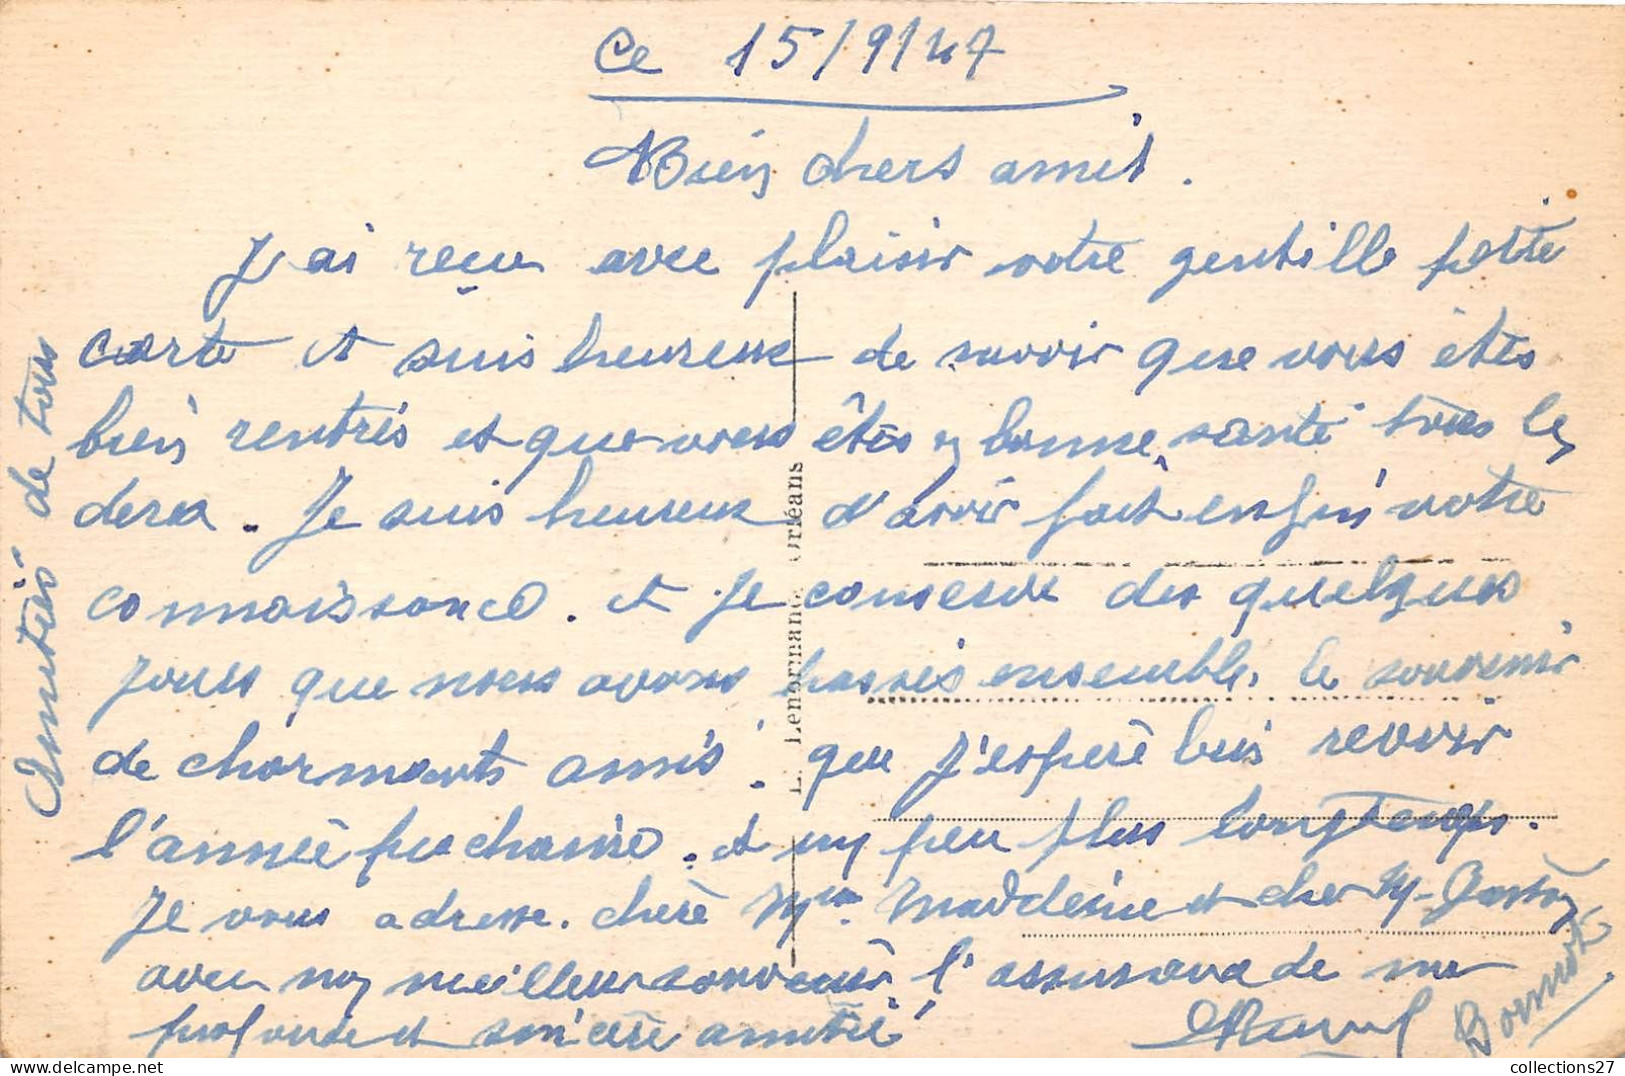 Ce 15/9/47
Bien chers amis.
J'ai reçu avec plaisir votre gentille petite
carte et suis heureux de savoir que vous êtes
bien rentrés et que vous êtes en bonne santé tous les
deux. Je suis heureux d'avoir fait enfin votre
connaissance. et je conserve des quelques
jours que nous avons passés ensemble. le souvenir
de charmants amis. que j'espère bien revoir
l'année prochaine. et un peu plus longtemps.
Je vous adresse. chère Mme Madeleine et cher M. Gaston
avec mon meilleur souvenir l'assurance de ma
profonde et sincère amitié
Bonnot
Amitiés de tous
L. Lenormand, Orléans
collections27